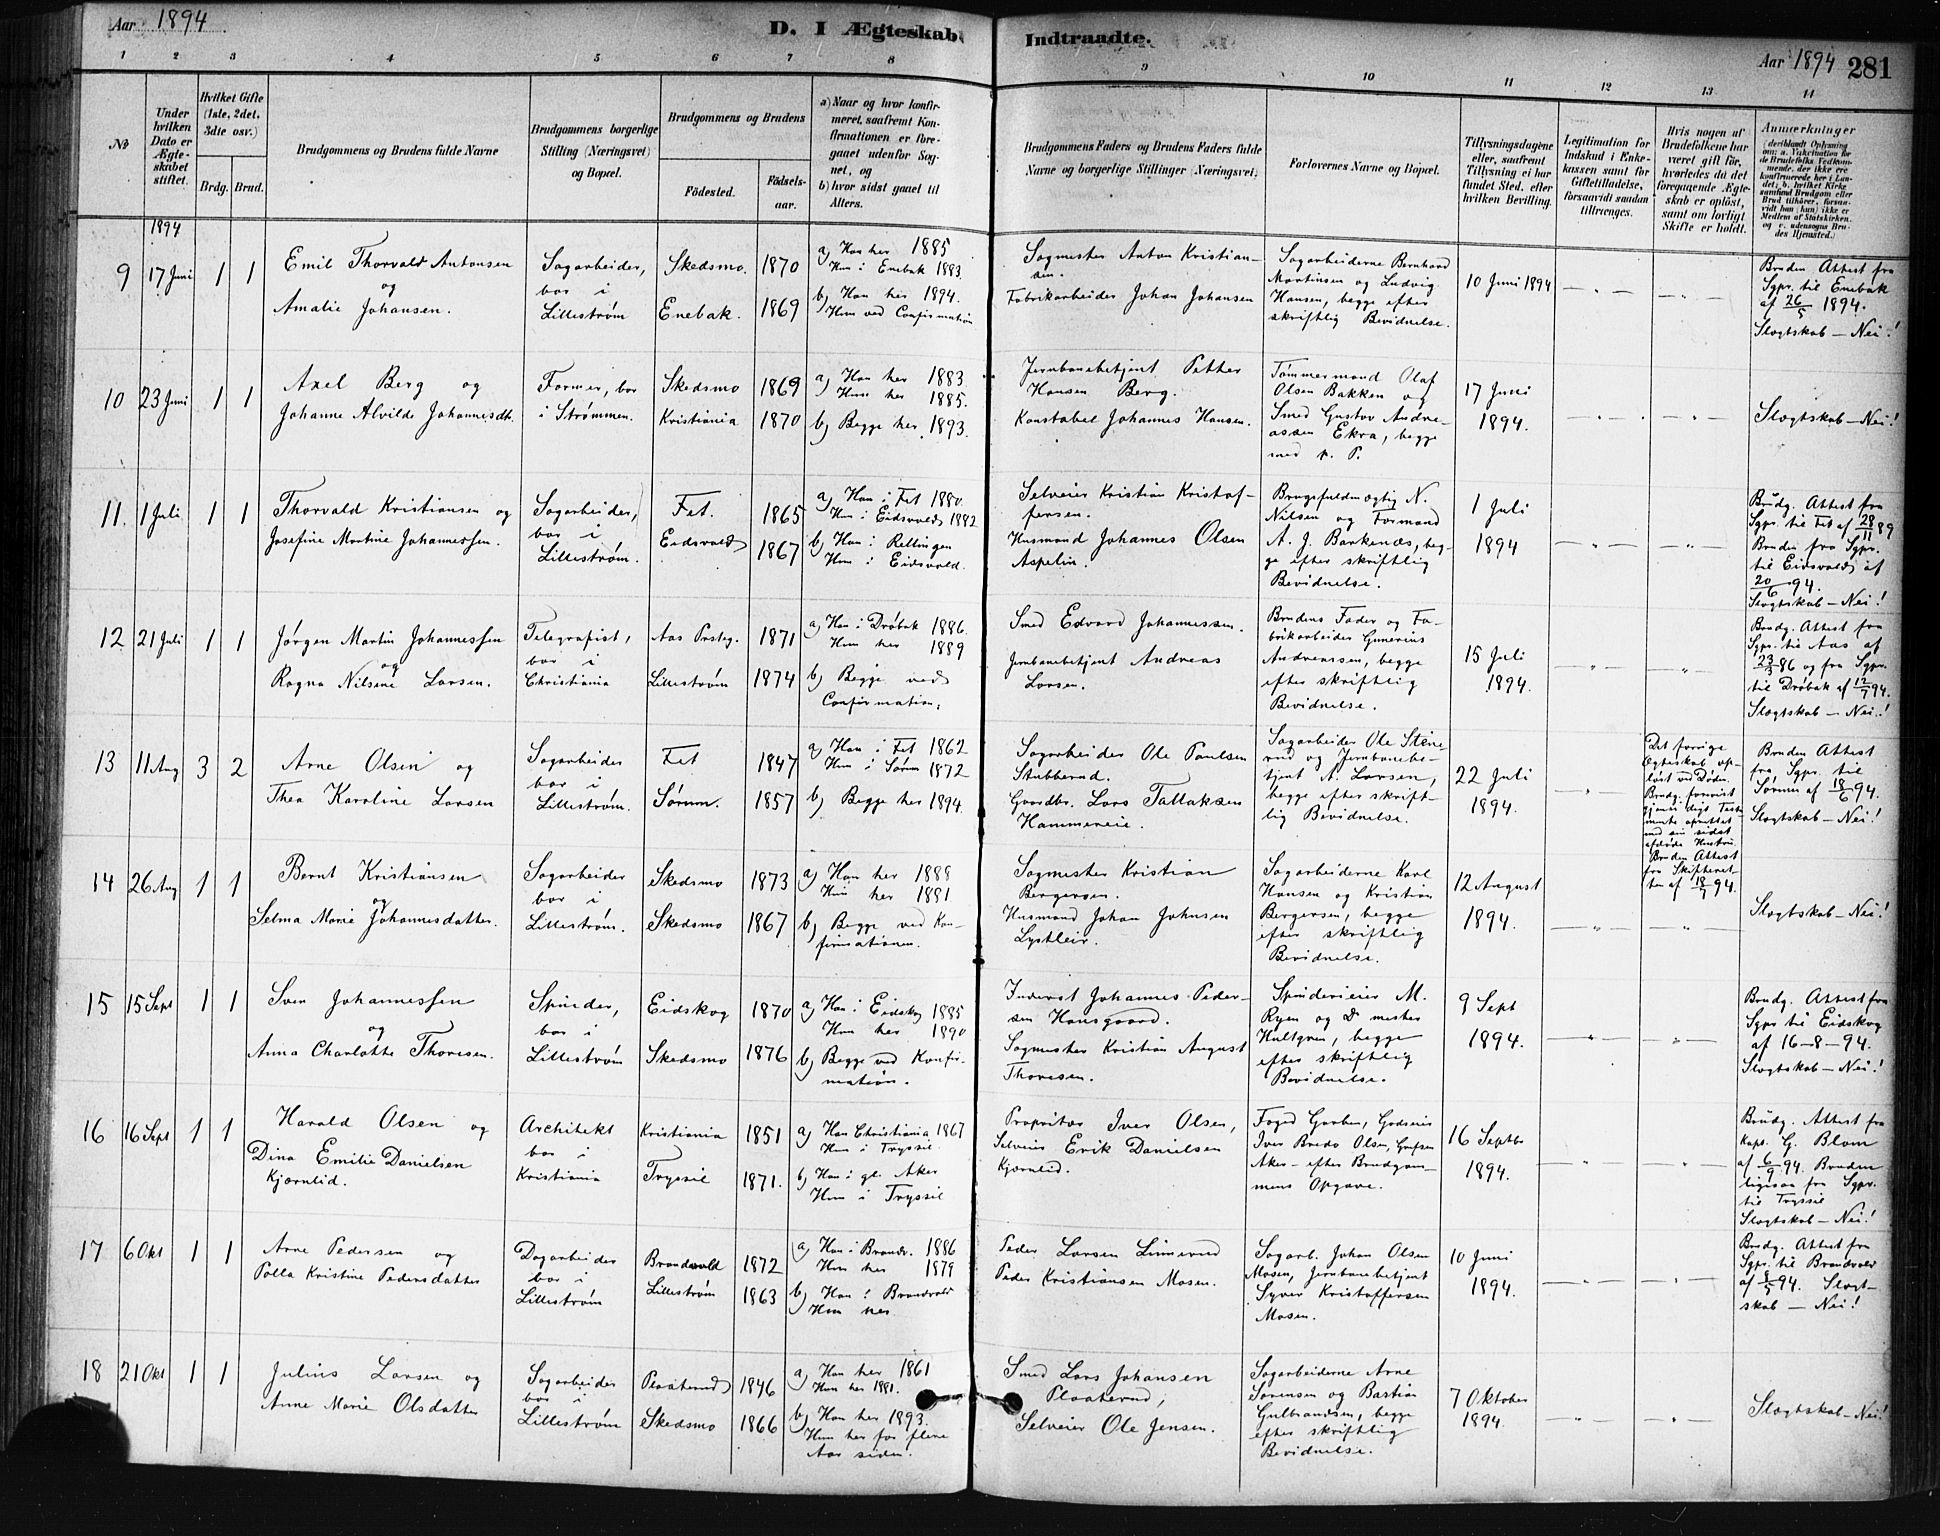 Aar 1894
D. I Ægteskab Indtraadte.
Aar 1894 281
1 2 3 4 5 6 7 8 9 10 11 12 13 14
No
Under hvilken Dato er Ægteskabet stiftet.
Hvilket Gifte (1ste, 2det, 3die osv.)
Brdg. Brud.
Brudgommens og Brudens fulde Navne
Brudgommens borgerlige Stilling (Næringsvei) og Bopæl.
Brudgommens og Brudens
Fødested.
Fødselsaar.
a) Naar og hvor konfirmeret, saafremt Konfirmationen er foregaaet udenfor Sognet, og
b) hvor sidst gaaet til Alters.
Brudgommens Faders og Brudens Faders fulde Navne og borgerlige Stillinger (Næringsvei)
Forlovernes Navne og Bopæl.
Tillysningsdagene eller, saafremt Tillysning ei har fundet Sted, efter hvilken Bevilling.
Legitimation for Indskud i Enkekassen samt for Giftetilladelse, forsaavidt saadan tiltrænges.
Hvis nogen af Brudefolkene har været gift før, hvorledes da det foregaaende Ægteskab er opløst, samt om lovligt Skifte er holdt.
Anmærkninger
1894
9 17 Juni 1 1
Emil Thorvald Antonsen
og
Amalie Johansen.
Sagarbeider,
bor i
Lillestrøm
Skedsmo. 1870
Enebak. 1869
a) Han her 1885
Hun i Enebak 1883.
b) Han her 1894.
Hun ved Confirmation
Sagmester Anton Kristian-
sen.
Fabrikarbeider Johan Johansen
Sagarbeiderne Bernhard
Martinsen og Ludvig
Hansen, begge efter
skriftlig Bevidnelse.
10 Juni 1894
Bruden Attest fra
Sgpr. til Enebak
af 26/5 1894.
Slægtskab – Nei!
10 23 Juni 1 1
Axel Berg og
Johanne Alvilde Johannesdt.
Former, bor
i Strømmen.
Skedsmo 1869
Kristiania 1870
a) Han her 1883.
Hun her 1885.
b) Begge her 1893.
Jernbanebetjent Petter
Hansen Berg.
Konstabel Johannes Hansen.
Tømmermand Olaf
Olsen Bakken og
Smed Gustav Andre-
assen Ekra, begge
med p. P.
17 Juni
1894.
Slægtskab – Nei!
11. 1 Juli 1 1
Thorvald Kristiansen og
Josefine Martine Johannessen.
Sagarbeider,
bor i
Lillestrøm.
Fet. 1865
Eidsvold 1867
a) Han i Fet 1880.
Hun i Eidsvold 1882
b) Han i Rellingen
Hun i Eidsvold.
Selveier Kristian Kristof-
fersen.
Husmand Johannes Olsen
Aspelin.
Brugsfuldmægtig N.
Nilsen og Formand
A. J. Barkenæs, beg-
ge efter skriftlig
Bevidnelse.
1 Juli
1894
Brudg. Attest fra
Sgpr. til Fet af 28/11 89
Bruden fra Sgpr.
til Eidsvold af
20/6 94.
Slægtskab – Nei!
12 21 Juli 1 1
Jørgen Martin Johannessen
og
Ragna Nilsine Larsen.
Telegrafist,
bor i
Christiania
Aas Prstg. 1871
Lillestrøm 1874
a) Han i Drøbak 1886.
Hun her 1889
b) Begge ved
Confirmation.
Smed Edvard Johannessen.
Jernbanebetjent Andreas
Larsen.
Brudens Fader og Fa-
brikarbeider Gunerius
Andreassen, begge
efter skriftlig
Bevidnelse.
15 Juli
1894.
Brudg. Attest fra
Sgpr. til Aas af
23/3 86 og fra Sgpr.
til Drøbak af 12/7 94.
Slægtskab – Nei!
13 11 Aug 3 2
Arne Olsen og
Thea Karoline Larsen
Sagarbeider
bor i
Lillestrøm.
Fet 1847
Sørum. 1857
a) Han i Fet 1862
Hun i Sørum 1872
b) Begge her 1894.
Sagarbeider Ole Paulsen
Stubberud.
Gaardbr. Lars Tallaksen
Hammereie.
Sagarbeider Ole Stene-
rud og Jernbanebe-
tjent A. Larsen,
begge efter skrift-
lig Bevidnelse.
22 Juli
1894.
Det forrige
Egteskab op-
løst ved Døden.
Brudg. forevist
med sin sidst
afdøde Hustru.
Bruden Attest
fra Skifteret-
ten af 18/7 94.
Bruden Attest
fra Sgpr. til
Sørum af 18/6 94.
Slægtskab – Nei!
14 26 Aug 1 1
Bernt Kristiansen
og
Selma Marie Johannesdatter.
Sagarbeider
bor i
Lillestrøm.
Skedsmo 1873
Skedsmo 1867
a) Han her 1888
Hun her 1881
b) Begge ved Kon-
firmationen.
Sagmester Kristian
Bergersen.
Husmand Johan Johnsen
Lystleir.
Sagarbeiderne Karl
Hansen og Kristian
Bergersen, begge
efter skriftlig
Bevidnelse.
12 August
1894.
Slægtskab – Nei!
15 15 Sept 1 1
Sven Johannessen
og
Anna Charlotte Thoresen.
Spinder,
bor i
Lillestrøm
Eidskog 1870
Skedsmo 1876
a) Han i Eidskog 1885
Hun her 1890
b) Begge ved Konfir-
mation.
Inderst Johannes Peder-
sen Hansgaard.
Sagmester Kristian August
Thoresen.
Spinderieier M.
Ryen og Do mester
Hultgren, begge
efter skriftlig
Bevidnelse.
9 Sept
1894.
Brudg. Attest fra
Sgpr til Eidskog
af 16-8-94.
Slægtskab – Nei!
16 16 Sept 1 1
Harald Olsen og
Dina Emilie Danielsen
Kjærnlid.
Architekt
bor i
Kristiania
Kristiania 1851
Tryssil 1871.
a) Han Christiania 1867
Hun i Tryssil.
b) Han i gl. Aker
Hun i Tryssil
Propritær Iver Olsen,
Selveier Erik Danielsen
Kjærnlid.
Foged Garben, Godseier
Iver Bredo Olsen, Grefsen
Aker – efter Brudgom-
mens Opgave.
16 Septbr
1894.
Brudg. Attest fra
Kap. G. Blom
af 6/9 94. Bruden
ligesaa fra Sgpr.
til Tryssil
Slægtskab – Nei!
17 6 Okt 1 1
Arne Pedersen og
Polla Kristine Pedersdatter
Dagarbeider
bor i
Lillestrøm
Brandvold 1872
Lillestrøm 1863
a) Han i Brandv. 1886
Hun her 1879
b) Han i Brandvold
Hun her.
Peder Larsen Linnerud
Peder Kristiansen Mosen.
Sagarb. Johan Olsen
Mosen, Jernbanebetjent
Syver Kristoffersen
Mosen.
10 Juni
1894.
Brudg. Attest fra
Sgpr. til Brandvold
af 8/5 94. Slægt-
skab – Nei!
18 21 Okt 1 1
Julius Larsen og
Anne Marie Olsdatter
Sagarbeider
bor i
Lillestrøm
Plaaterud 1846
Skedsmo 1866
a) Han her 1861
Hun her 1881.
b) Han her 1893.
Hun her for flere
Aar siden.
Smed Lars Johansen
Plaaterud,
Selveier Ole Jensen.
Sagarbeiderne Arne
Sørensen og Bastian
Gulbrandsen, begge
efter skriftlig
Bevidnelse.
7 Oktober
1894.
Slægtskab – Nei!